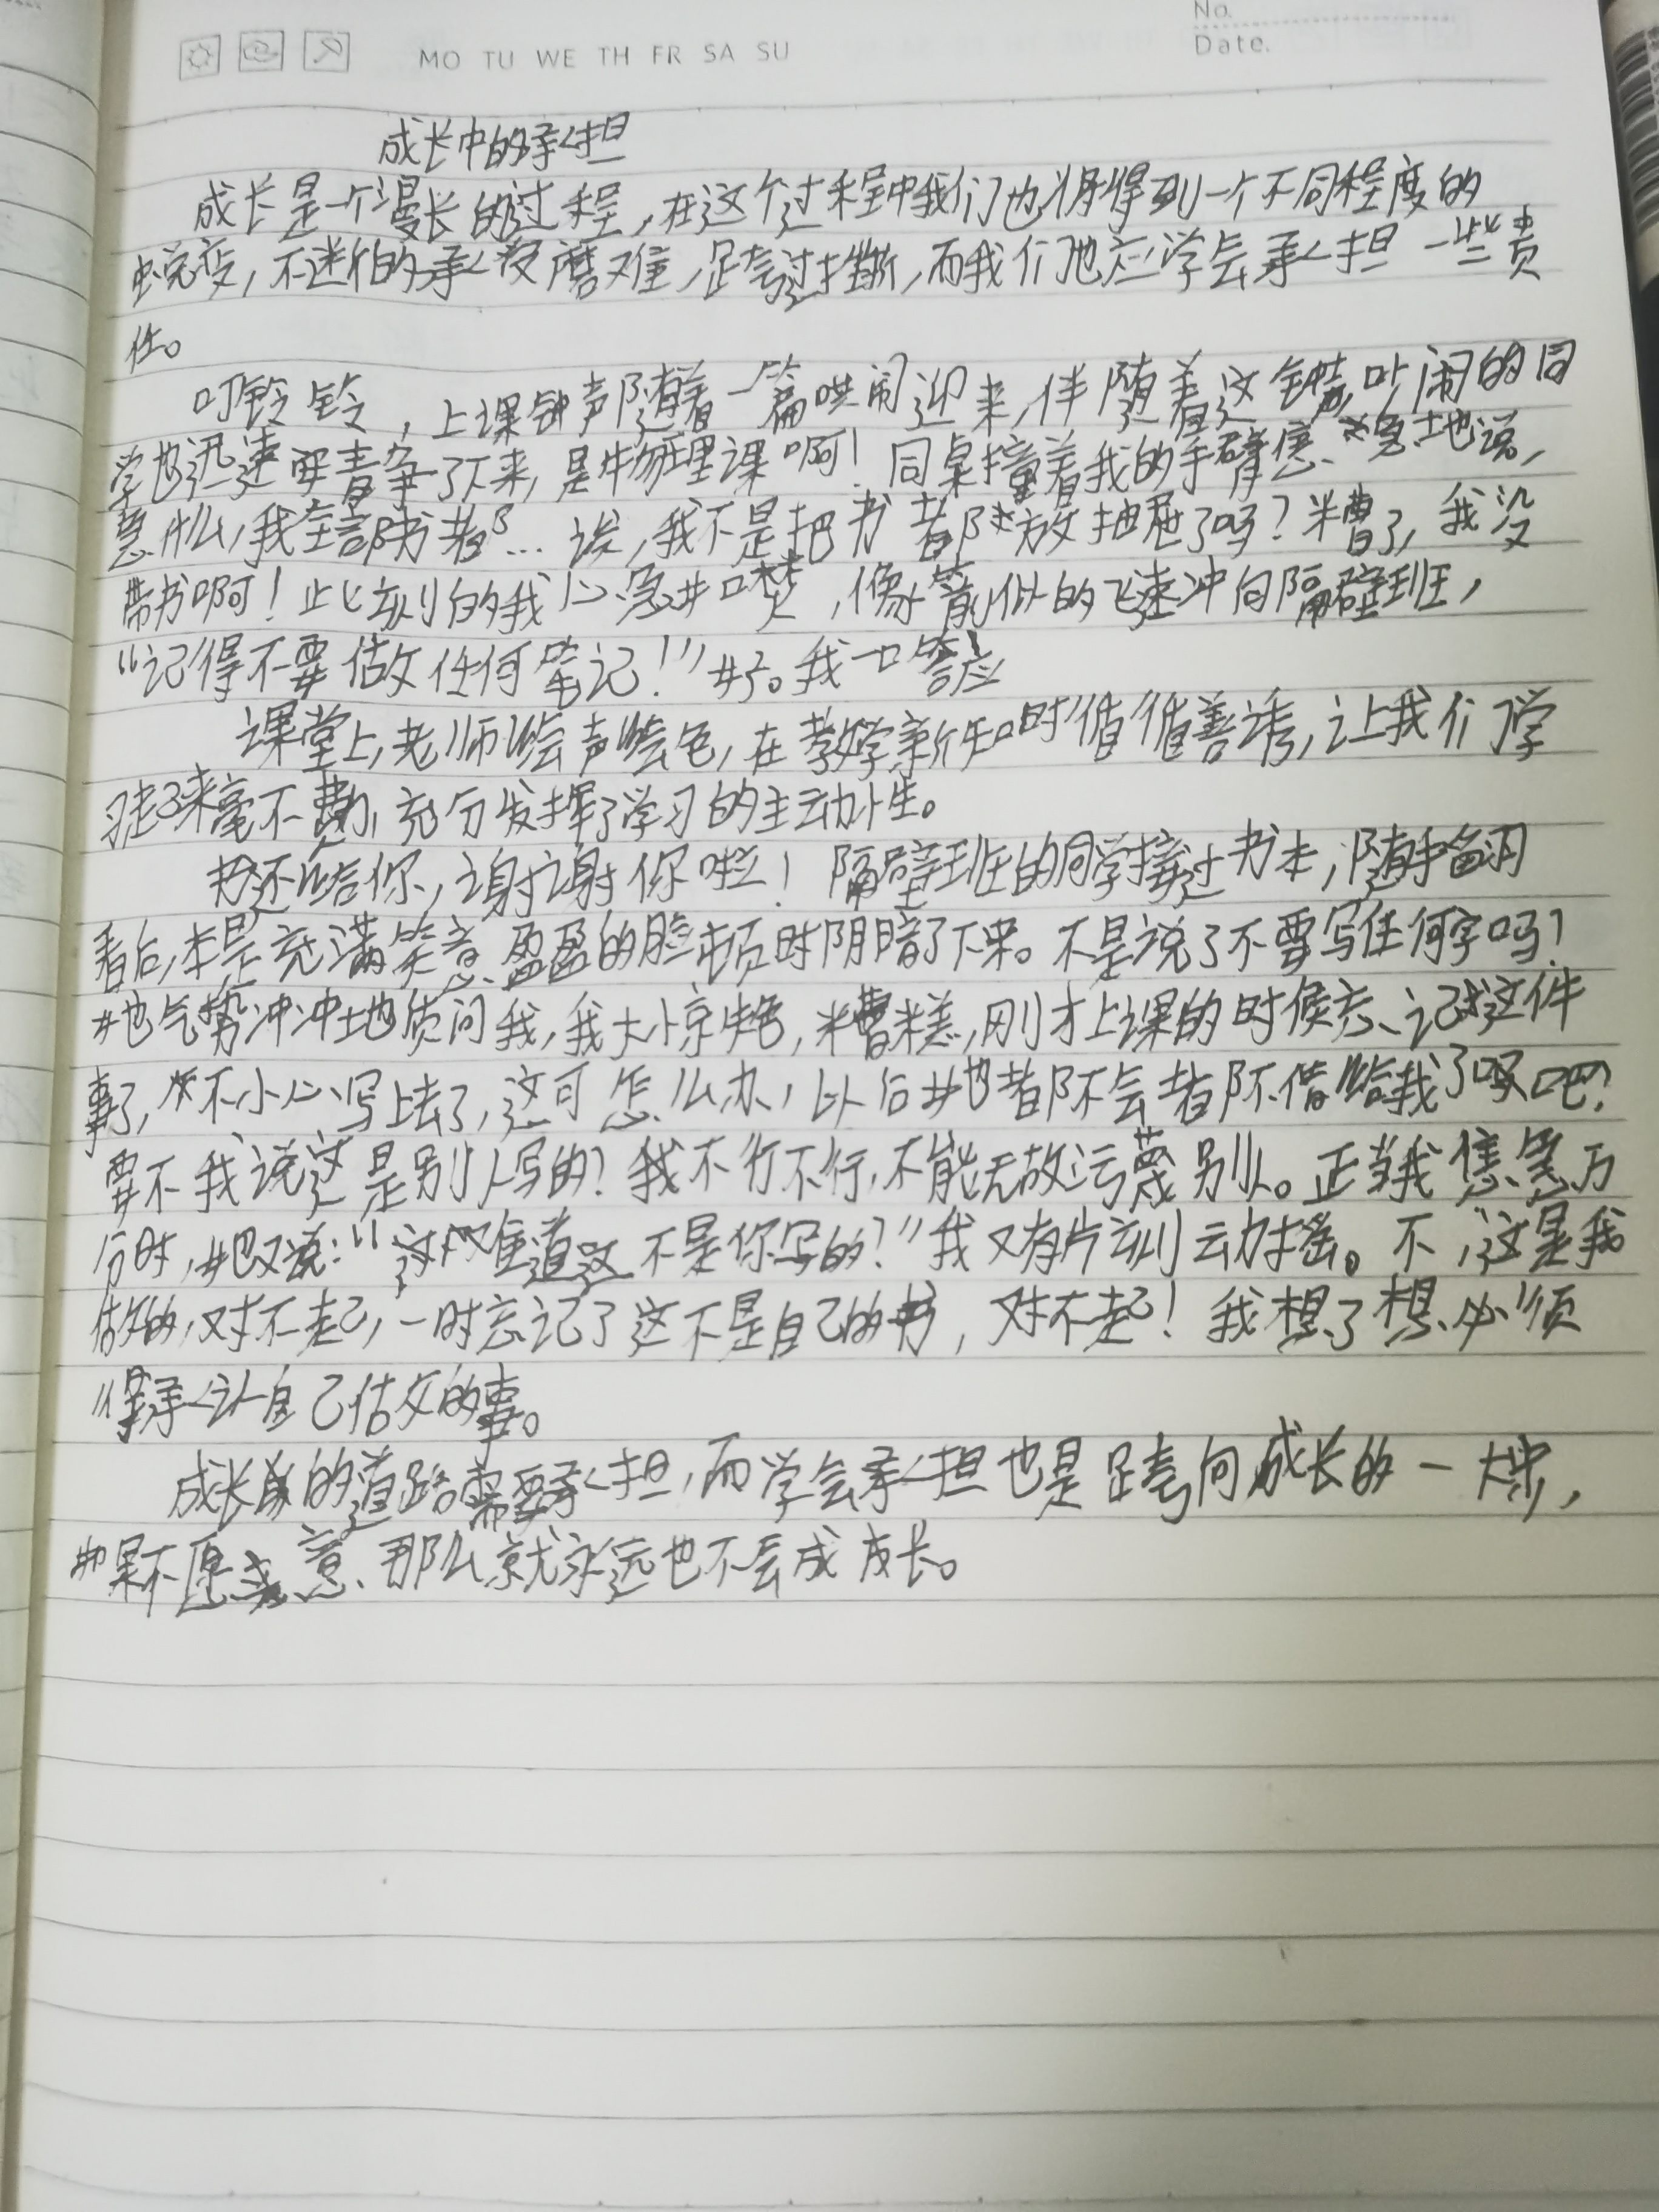 No.
MO TU WE TH FR SA SU
Date.
成长中的承担
成长是一个漫长的过程,在这个过程中我们也将得到一个不同程度的
蜕变,不迷怕的承受磨难,跨过挫断,而我们也应学会承担一些责
任。
叮铃铃,上课钟声随着一篇哄闹迎来,伴随着这钟声,吵闹的同
学也迅速安静了下来,是物理课啊!同桌撞着我的手臂急急地说,
急什么,我全部书都…诶,我不是把书都放抽屉了吗?糟了,我没
带书啊!此刻的我心急如焚,像箭似的飞速冲向隔壁班,
“记得不要做任何笔记!”好。我一口答应
课堂上,老师绘声绘色,在教学新知时循循善诱,让我们学
习起来毫不费力,充分发挥了学习的主动性。
书还给你,谢谢你啦!隔壁班的同学接过书本,随手翻
看后,本是充满笑意盈盈的脸顿时阴暗了下来。不是说了不要写任何字吗!
她气势冲冲地质问我,我大惊失色,糟糕,刚才上课的时候忘记这件
事了,不小心写上去了,这可怎么办,以后她都不会都不借给我了吧?
要不我说这是别人写的?我不行不行,不能无故污蔑别人。正当我焦急万
分时,她又说:“难道这不是你写的?”我又有片刻动摇。不,这是我
做的,对不起,一时忘记了这不是自己的书,对不起!我想了想必须
得承认自己做的事。
成长的道路需要承担,而学会承担也是跨向成长的一大步,
如果不愿意,那么就永远也不会成长。